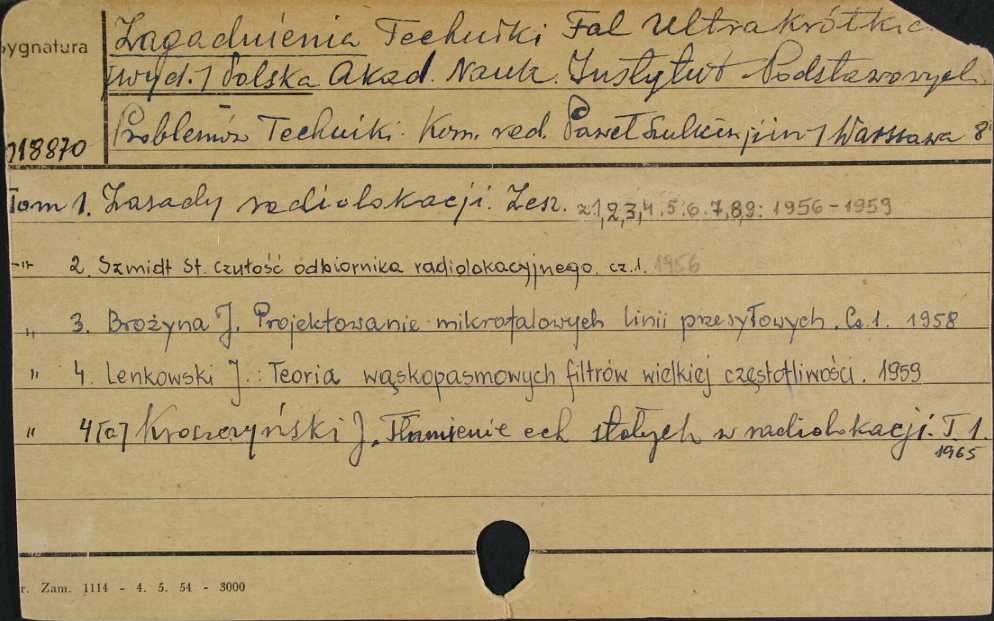 Zagadnienia Techniki Fal Ultrakrótkic
sygnatura
[wyd.] Polska Akad. Nauk. Instytut Podstawowych
Problemów Techniki. Kom. red. Paweł Szulkin [i in.] Warszawa 8°
118870
Tom 1. Zasady radiolokacji. Zesz. z.1,2,3,4.5.6.7,8,9: 1956-1959
-"- 2. Szmidt St. Czułość odbiornika radiolokacyjnego. cz.1. 1956
" 3. Brożyna J. Projektowanie mikrofalowych linii przesyłowych. Cz.1. 1958
" 4. Lenkowski J.: Teoria wąskopasmowych filtrów wielkiej częstotliwości. 1959
" 4[a] Kroszczyński J. Tłumienie ech stałych w radiolokacji. T. 1.
1965
r. Zam. 1114 - 4. 5. 54 - 3000